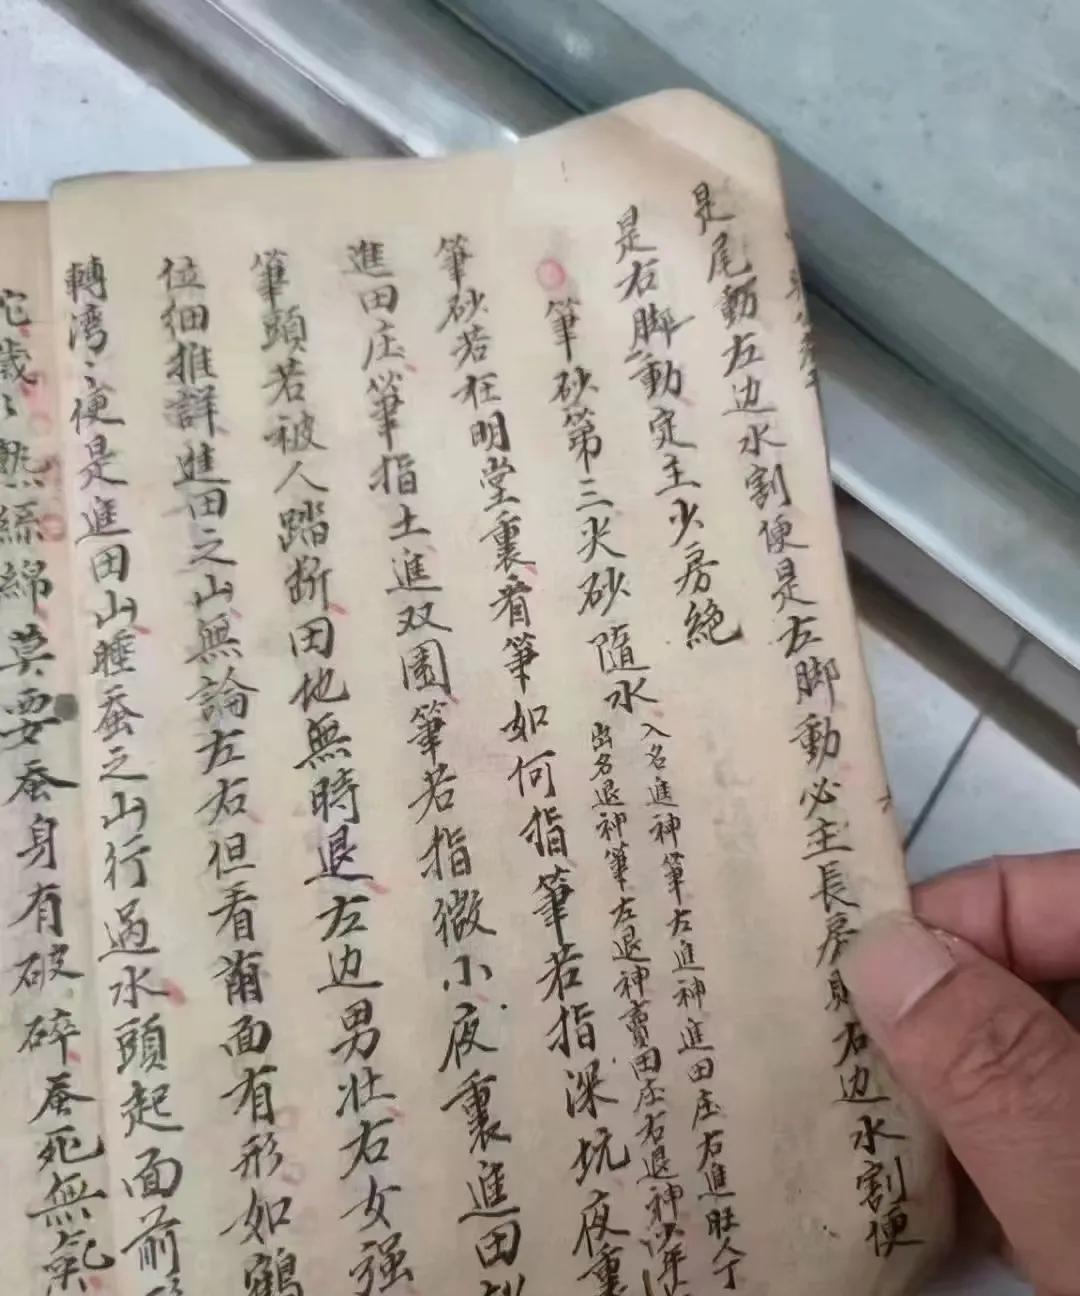 是尾動左边水割便是左脚動必主長房財右边水割便
是右脚動定主少房絶
筆砂第三尖砂隨水
入名進神筆左進神進田庄右進旺人丁
出名退神筆左退神賣田庄右退神少年
筆砂若在明堂裏看筆如何指筆若指深坑夜裏
進田庄筆指土進双園筆若指微小夜裏進田
筆頭若被人踏断田地無時退左边男壮右女强
位细推詳進田之山無論左右但看前面有形如鶴
轉湾〻便是進田山睡蚕之山行過水頭起面前
蛇歲〻熟絲綿莫要蚕身有破碎蚕死無氣